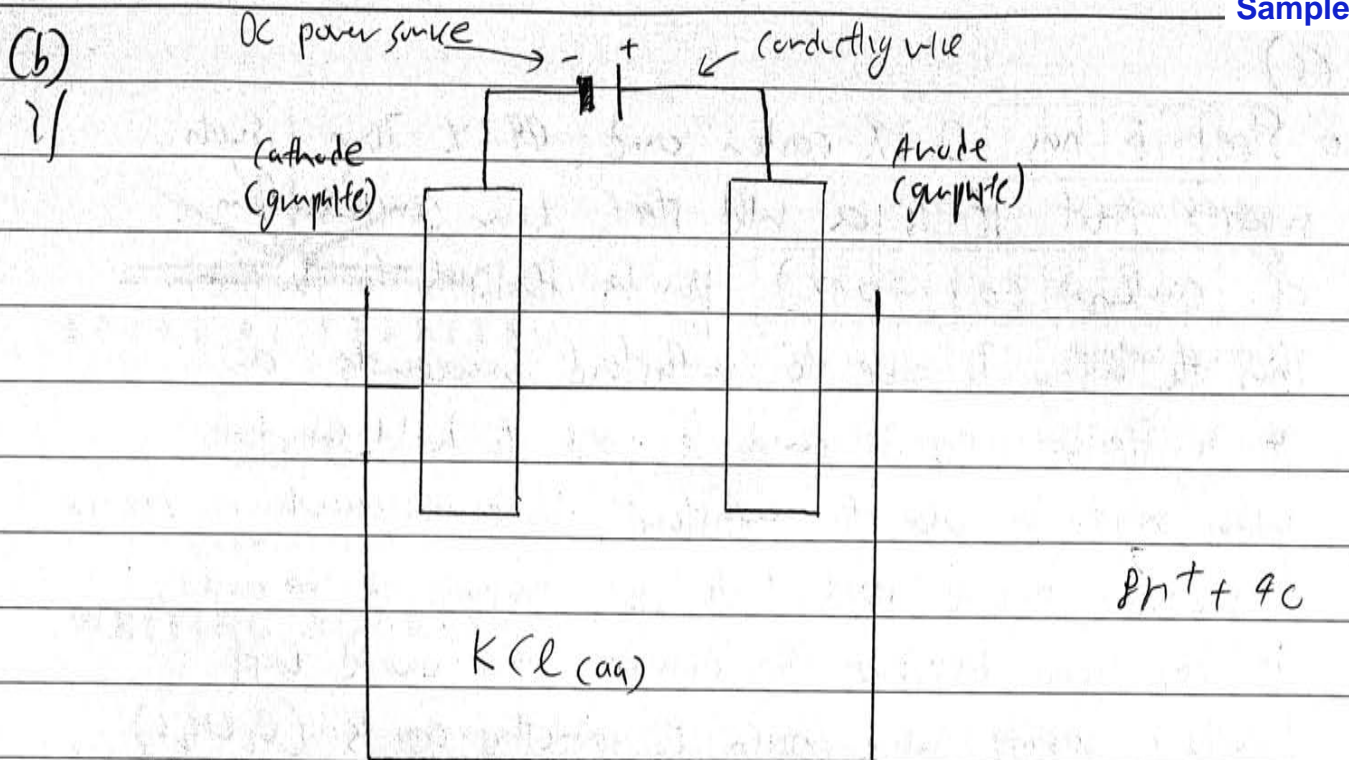 Sample
(b)
DC power source
- +
conducting wire
Cathode
(graphite)
Anode
(graphite)
KCl (aq)